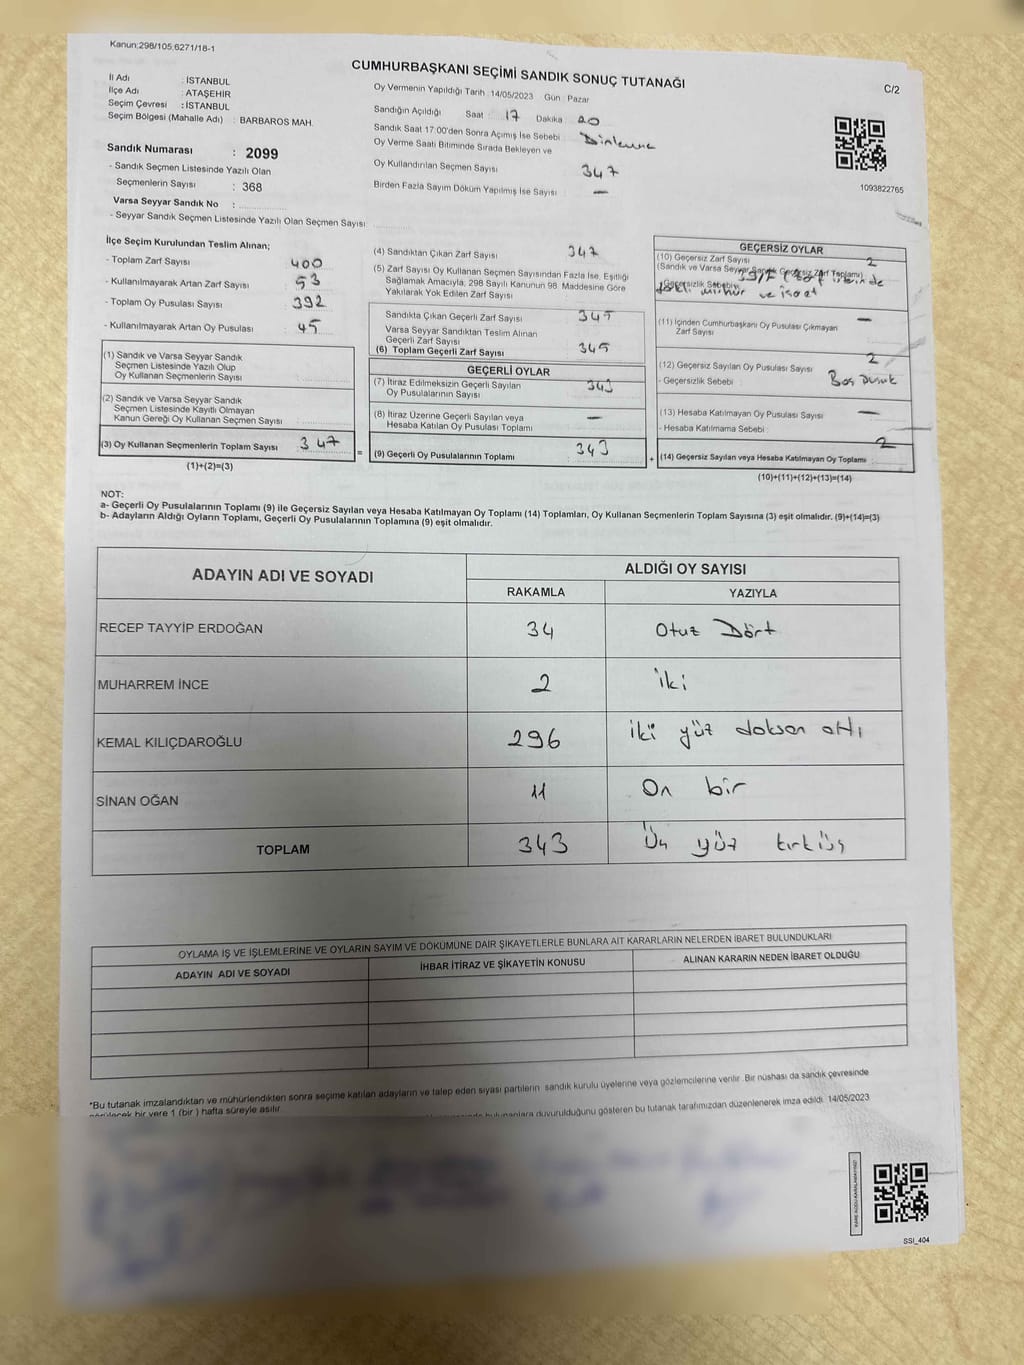 Kanun;298/105,6271/18-1
CUMHURBAŞKANI SEÇİMİ SANDIK SONUÇ TUTANAĞI
C/2
İl Adı : İSTANBUL
İlçe Adı : ATAŞEHİR
Seçim Çevresi : İSTANBUL
Seçim Bölgesi (Mahalle Adı) : BARBAROS MAH.
Sandık Numarası : 2099
- Sandık Seçmen Listesinde Yazılı Olan
Seçmenlerin Sayısı : 368
Varsa Seyyar Sandık No :
- Seyyar Sandık Seçmen Listesinde Yazılı Olan Seçmen Sayısı
Oy Vermenin Yapıldığı Tarih :14/05/2023 Gün : Pazar
Sandığın Açıldığı Saat : 17 Dakika : 20
Sandık Saat 17:00'den Sonra Açımış İse Sebebi :
Oy Verme Saati Bitiminde Sırada Bekleyen ve
Oy Kullandırılan Seçmen Sayısı : 347
Birden Fazla Sayım Döküm Yapılmış İse Sayısı : —
1093822765
İlçe Seçim Kurulundan Teslim Alınan;
- Toplam Zarf Sayısı : 400
- Kullanılmayarak Artan Zarf Sayısı : 53
- Toplam Oy Pusulası Sayısı : 392
- Kullanılmayarak Artan Oy Pusulası : 45
(1) Sandık ve Varsa Seyyar Sandık
Seçmen Listesinde Yazılı Olup
Oy Kullanan Seçmenlerin Sayısı :
(2) Sandık ve Varsa Seyyar Sandık
Seçmen Listesinde Kayıtlı Olmayan
Kanun Gereği Oy Kullanan Seçmen Sayısı :
(3) Oy Kullanan Seçmenlerin Toplam Sayısı : 347
(1)+(2)=(3)
=
(4) Sandıktan Çıkan Zarf Sayısı : 347
(5) Zarf Sayısı Oy Kullanan Seçmen Sayısından Fazla İse, Eşitliği
Sağlamak Amacıyla, 298 Sayılı Kanunun 98. Maddesine Göre
Yakılarak Yok Edilen Zarf Sayısı :
Sandıkta Çıkan Geçerli Zarf Sayısı : 345
Varsa Seyyar Sandıktan Teslim Alınan
Geçerli Zarf Sayısı :
(6) Toplam Geçerli Zarf Sayısı : 345
GEÇERLİ OYLAR
(7) İtiraz Edilmeksizin Geçerli Sayılan
Oy Pusulalarının Sayısı : 343
(8) İtiraz Üzerine Geçerli Sayılan veya
Hesaba Katılan Oy Pusulası Toplamı : —
(9) Geçerli Oy Pusulalarının Toplamı : 343
+
GEÇERSİZ OYLAR
(10) Geçersiz Zarf Sayısı : 2
(Sandık ve Varsa Seyyar Sandık Geçersiz Zarf Toplamı)
- Geçersizlik Sebebi : mühür ve işaret
(11) İçinden Cumhurbaşkanı Oy Pusulası Çıkmayan
Zarf Sayısı : —
(12) Geçersiz Sayılan Oy Pusulası Sayısı : 2
- Geçersizlik Sebebi : Boş
(13) Hesaba Katılmayan Oy Pusulası Sayısı : —
- Hesaba Katılmama Sebebi :
(14) Geçersiz Sayılan veya Hesaba Katılmayan Oy Toplamı : 2
(10)+(11)+(12)+(13)=(14)
NOT:
a- Geçerli Oy Pusulalarının Toplamı (9) ile Geçersiz Sayılan veya Hesaba Katılmayan Oy Toplamı (14) Toplamları, Oy Kullanan Seçmenlerin Toplam Sayısına (3) eşit olmalıdır. (9)+(14)=(3)
b- Adayların Aldığı Oyların Toplamı, Geçerli Oy Pusulalarının Toplamına (9) eşit olmalıdır.
ADAYIN ADI VE SOYADI
ALDIĞI OY SAYISI
RAKAMLA YAZIYLA
RECEP TAYYİP ERDOĞAN 34 Otuz Dört
MUHARREM İNCE 2 iki
KEMAL KILIÇDAROĞLU 296 iki yüz doksan altı
SİNAN OĞAN 11 On bir
TOPLAM 343 Üç yüz kırküç
OYLAMA İŞ VE İŞLEMLERİNE VE OYLARIN SAYIM VE DÖKÜMÜNE DAİR ŞİKAYETLERLE BUNLARA AİT KARARLARIN NELERDEN İBARET BULUNDUKLARI
ADAYIN ADI VE SOYADI İHBAR İTİRAZ VE ŞİKAYETİN KONUSU ALINAN KARARIN NEDEN İBARET OLDUĞU
*Bu tutanak imzalandıktan ve mühürlendikten sonra seçime katılan adayların ve talep eden siyasi partilerin sandık kurulu üyelerine veya gözlemcilerine verilir. Bir nüshası da sandık çevresinde
görülecek bir yere 1 (bir ) hafta süreyle asılır.
bulunanlara duyurulduğunu gösteren bu tutanak tarafımızdan düzenlenerek imza edildi. 14/05/2023
SSI_404